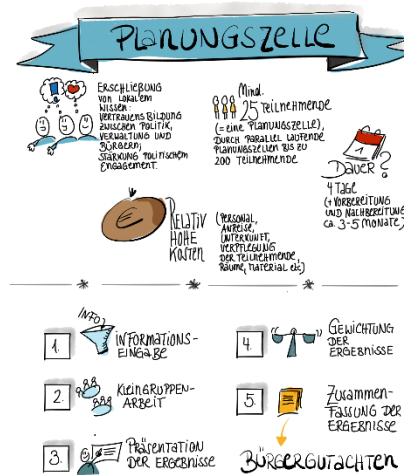 PLANUNGSZELLE
ERSCHLIEßUNG
VON LOKALEM
WISSEN;
VERTRAUENSBILDUNG
ZWISCHEN POLITIK,
VERWALTUNG UND
BÜRGERN;
STÄRKUNG POLITISCHEM
ENGAGEMENT.
Mind.
25 TEILNEHMENDE
(= EINE PLANUNGSZELLE),
DURCH PARALLEL LAUFENDE
PLANUNGSZELLEN BIS ZU
200 TEILNEHMENDE
1
DAUER?
4 TAGE
(+ VORBEREITUNG
UND NACHBEREITUNG
CA. 3-5 MONATE)
RELATIV
HOHE
KOSTEN
(PERSONAL,
ANREISE,
UNTERKUNFT,
VERPFLEGUNG
DER TEILNEHMENDE,
RÄUME, MATERIAL etc)
INFO
1. INFORMATIONS-
EINGABE
2. KLEINGRUPPEN-
ARBEIT
3. PRÄSENTATION
DER ERGEBNISSE
4. GEWICHTUNG
DER
ERGEBNISSE
5. ZUSAMMEN-
FASSUNG DER
ERGEBNISSE
BÜRGERGUTACHTEN